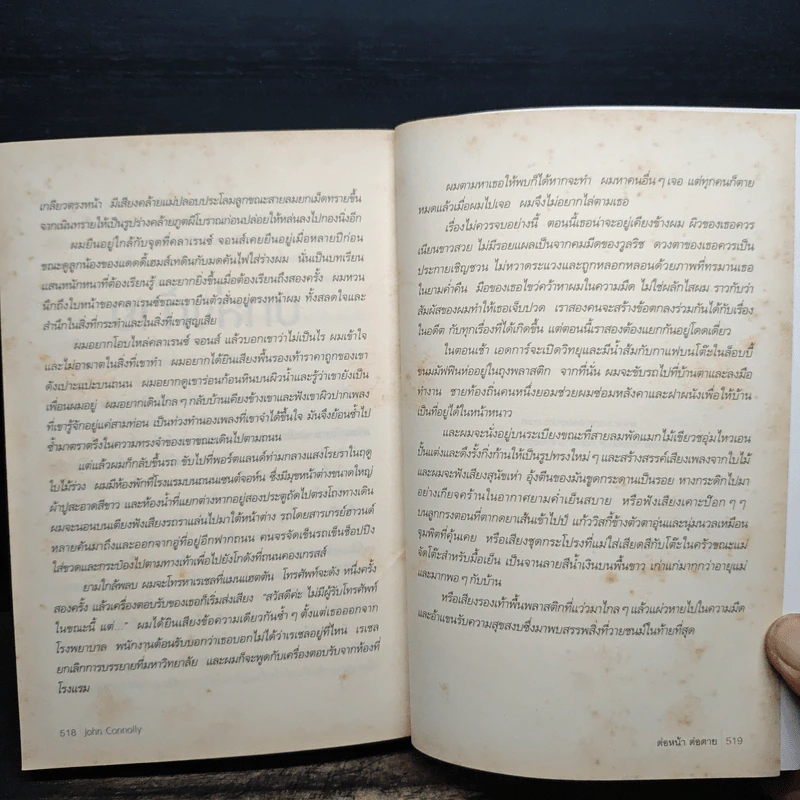 เกลียวตรงหน้า มีเสียงคล้ายแม่ปลอบประโลมลูกขณะสายลมยกเม็ดทรายขึ้น
จากเนินทรายให้เป็นรูปร่างคล้ายภูตผีโบราณก่อนปล่อยให้หล่นลงไปกองนิ่งอีก
ผมยืนอยู่ใกล้กับจุดที่คลาเรนซ์ จอนส์เคยยืนอยู่เมื่อหลายปีก่อน
ขณะดูลูกน้องของแดดดี้เฮมส์เทดินกับมดคันไฟใส่ร่างผม นั่นเป็นบทเรียน
แสนหนักหนาที่ต้องเรียนรู้ และยากยิ่งขึ้นเมื่อต้องเรียนถึงสองครั้ง ผมหวน
นึกถึงใบหน้าของคลาเรนซ์ขณะเขายืนตัวสั่นอยู่ตรงหน้าผม ทั้งสลดใจและ
สำนึกในสิ่งที่กระทำและในสิ่งที่เขาสูญเสีย
ผมอยากโอบไหล่คลาเรนซ์ จอนส์ แล้วบอกเขาว่าไม่เป็นไร ผมเข้าใจ
และไม่อาฆาตในสิ่งที่เขาทำ ผมอยากได้ยินเสียงพื้นรองเท้าราคาถูกของเขา
ดังเปาะแปะบนถนน ผมอยากดูเขาร่อนก้อนหินบนผิวน้ำและรู้ว่าเขายังเป็น
เพื่อนผมอยู่ ผมอยากเดินไกล ๆ กลับบ้านเคียงข้างเขาและฟังเขาผิวปากเพลง
ที่เขารู้จักอยู่แค่สามท่อน เป็นท่วงทำนองเพลงที่เขาจำได้ขึ้นใจ มันจึงย้อนซ้ำไป
ซ้ำมาตราตรึงในความทรงจำของเขาขณะเดินไปตามถนน
แต่แล้วผมก็กลับขึ้นรถ ขับไปที่พอร์ตแลนด์ท่ามกลางแสงโรยราในฤดู
ใบไม้ร่วง ผมมีห้องพักที่โรงแรมบนถนนเซนต์จอห์น ซึ่งมีมุขหน้าต่างขนาดใหญ่
ผ้าปูสะอาดสีขาว และห้องน้ำที่แยกต่างหากอยู่สองประตูถัดไปตรงโถงทางเดิน
ผมจะนอนบนเตียงฟังเสียงรถราแล่นไปมาใต้หน้าต่าง รถโดยสารเกรย์ฮาวนด์
ทลายคันมาถึงและออกจากอู่ที่อยู่อีกฟากถนน คนจรจัดเข็นรถเข็นช็อปปิง
ใส่ขวดและกระป๋องไปตามทางเท้าเพื่อไปยังโกดังที่ถนนคองเกรสส์
ยามใกล้ค่ำลง ผมจะโทรหาเรเชลที่แมนแฮตตัน โทรศัพท์จะดัง หนึ่งครั้ง
สองครั้ง แล้วเครื่องตอบรับของเธอก็เริ่มส่งเสียง "สวัสดีค่ะ ไม่มีผู้รับโทรศัพท์
ในขณะนี้ แต่..." ผมได้ยินเสียงข้อความเดียวกันซ้ำ ๆ ตั้งแต่เธอออกจาก
โรงพยาบาล พนักงานต้อนรับบอกว่าเธอบอกไม่ได้ว่าเรเชลอยู่ที่ไหน เรเชล
ยกเลิกการบรรยายที่มหาวิทยาลัย และผมก็จะพูดกับเครื่องตอบรับจากห้องที่
โรงแรม
518 John Connolly
ผมตามหาเธอให้พบก็ได้หากจะทำ ผมหาคนอื่น ๆ เจอ แต่ทุกคนก็ตาย
หมดแล้วเมื่อผมไปเจอ ผมจึงไม่อยากไล่ตามเธอ
เรื่องไม่ควรจบอย่างนี้ ตอนนี้เธอน่าจะอยู่เคียงข้างผม ผิวของเธอควร
เนียนขาวสวย ไม่มีรอยแผลเป็นจากคมมีดของวูลริช ดวงตาของเธอควรเป็น
ประกายเชิญชวน ไม่หวาดระแวงและถูกหลอกหลอนด้วยภาพที่ทรมานเธอ
ในยามค่ำคืน มือของเธอไขว่คว้าหาผมในความมืด ไม่ใช่ผลักไสผม ราวกับว่า
สัมผัสของผมทำให้เธอเจ็บปวด เราสองคนจะสร้างข้อตกลงร่วมกันได้กับเรื่อง
ในอดีต กับทุกเรื่องที่ได้เกิดขึ้น แต่ตอนนี้เราสองต้องแยกกันอยู่โดดเดี่ยว
ในตอนเช้า เอดการ์จะเปิดวิทยุและมีน้ำส้มกับกาแฟบนโต๊ะในล็อบบี้
ขนมมัฟฟินห่ออยู่ในถุงพลาสติก จากที่นั่น ผมจะขับรถไปที่บ้านตาและลงมือ
ทำงาน ชายท้องถิ่นคนหนึ่งยอมช่วยผมซ่อมหลังคาและฝาผนังเพื่อให้บ้าน
เป็นที่อยู่ได้ในหน้าหนาว
และผมจะนั่งอยู่บนระเบียงขณะที่สายลมพัดแมกไม้เขียวชอุ่มไหวเอน
ปั้นแต่งและดึงรั้งกิ่งก้านให้เป็นรูปทรงใหม่ ๆ และสร้างสรรค์เสียงเพลงจากใบไม้
และผมจะฟังเสียงสุนัขเห่า อุ้งตีนของมันขูดกระดานเป็นรอย หางกระดิกไปมา
อย่างเกียจคร้านในอากาศยามค่ำเย็นสบาย หรือฟังเสียงเคาะป๊อก ๆ ๆ
บนลูกกรงตอนที่ตากดยาเส้นเข้าไปป์ แก้ววิสกี้ข้างตัวตาอุ่นและนุ่มนวลเหมือน
จุมพิตที่คุ้นเคย หรือเสียงชุดกระโปรงที่แม่ใส่เสียดสีกับโต๊ะในครัวขณะแม่
จัดโต๊ะสำหรับมื้อเย็น เป็นจานลายสีน้ำเงินบนพื้นขาว เก่าแก่มากกว่าอายุแม่
และมากพอ ๆ กับบ้าน
หรือเสียงรองเท้าพื้นพลาสติกที่แว่วมาไกล ๆ แล้วแผ่วหายไปในความมืด
และอ้าแขนรับความสุขสงบซึ่งมาพบสรรพสิ่งที่วายชนม์ในท้ายที่สุด
ต่อหน้า ต่อตาย 519